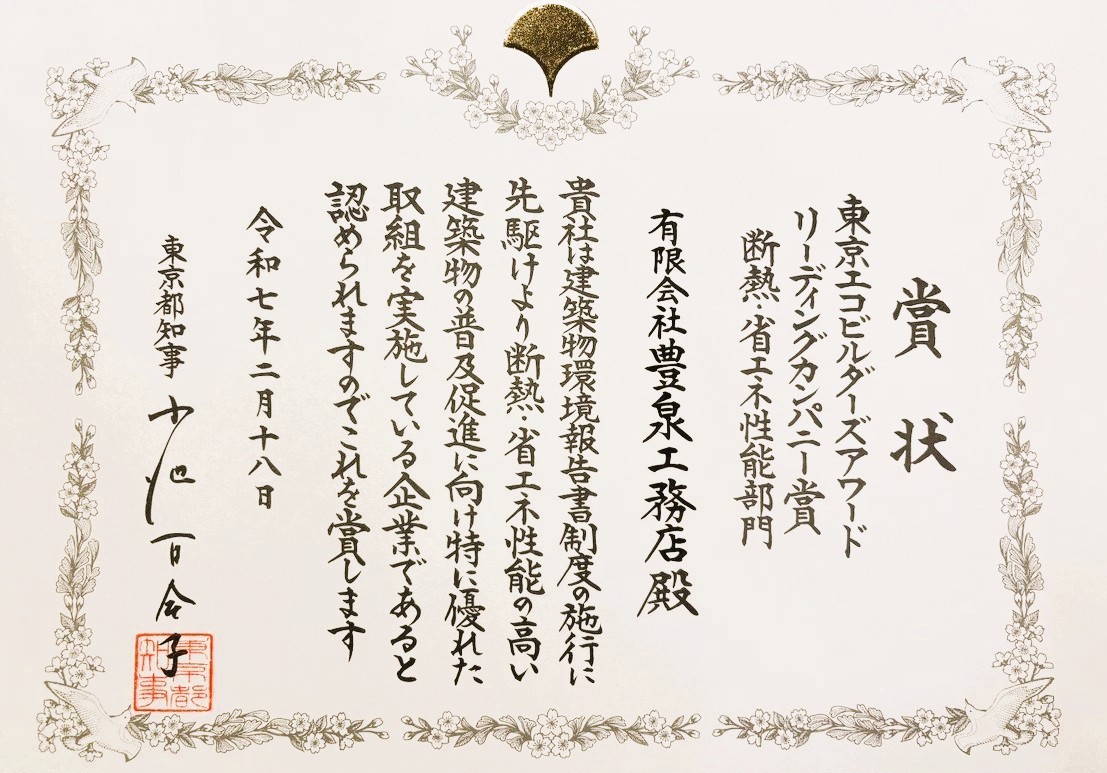 賞状
東京エコビルダーズアワード
リーディングカンパニー賞
断熱・省エネ性能部門
有限会社豊泉工務店殿
貴社は建築物環境報告書制度の施行に
先駆けより断熱・省エネ性能の高い
建築物の普及促進に向け特に優れた
取組を実施している企業であると
認められますのでこれを賞します
令和七年二月十八日
東京都知事
小池百合子
東京都知事